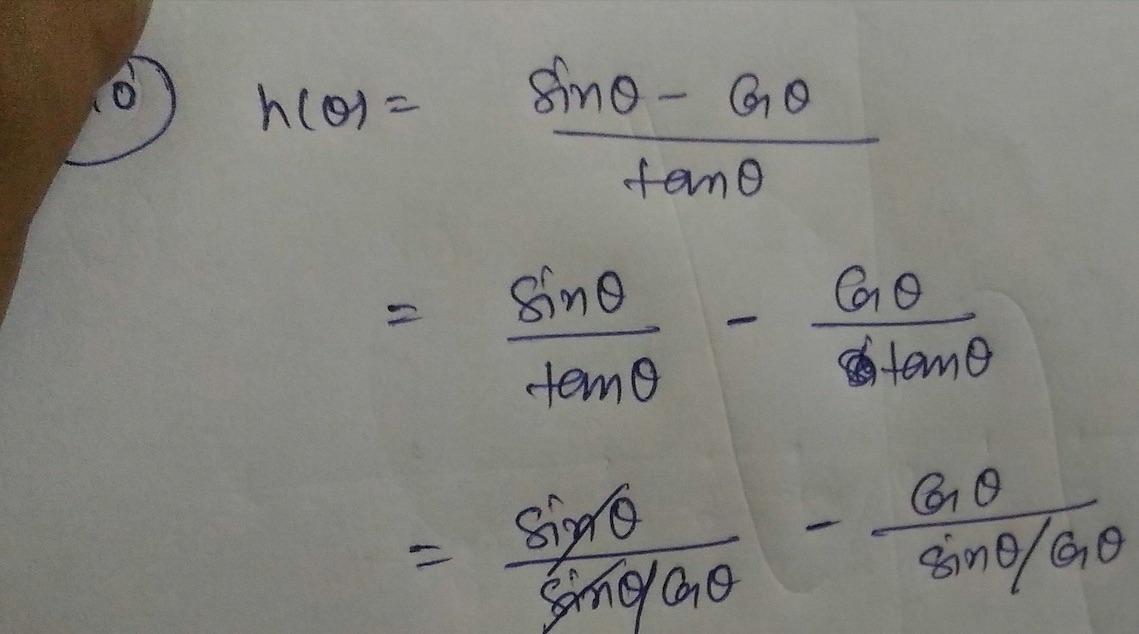 10) h(θ) = (sinθ - cosθ) / tanθ
= sinθ / tanθ - cosθ / tanθ
= sinθ / (sinθ/cosθ) - cosθ / (sinθ/cosθ)